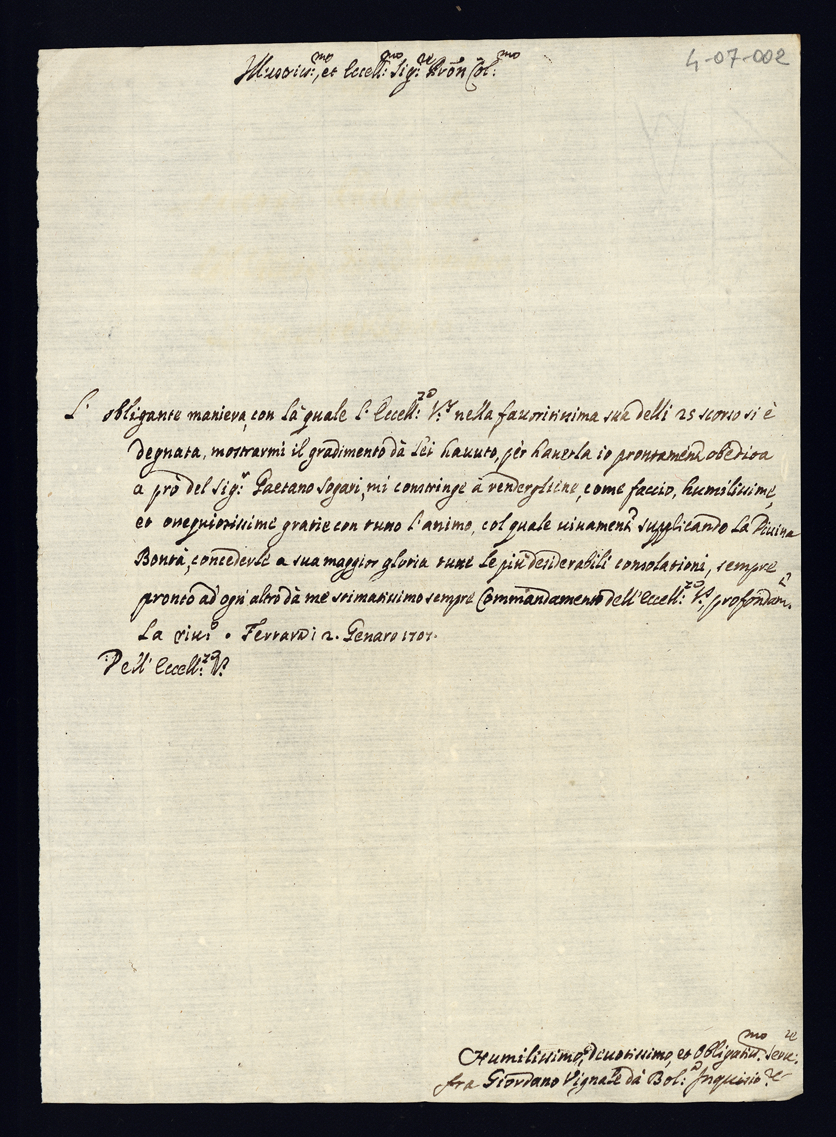 4-07-002
Illustriss:mo, et Eccell:mo Sig:re Pron Col:mo
L' obligante maniera, con la quale l' Eccell:za V:ra nella favoritissima sua delli 25 scorso si è
degnata, mostrarmi il gradimento dà Lei havuto, pèr haverla io prontamente obedita
a prò del Sig:r Gaetano Sogari, mi constringe à rendergliene, come faccio, humilissime,
et ossequiosissime gratie con tutto l'animo, col quale vivamente supplicando la Divina
Bontà, concederle a sua maggior gloria tutte le più desiderabili consolationi, sempre
pronto ad ogni altro dà me stimatissimo sempre Commandamento dell' Eccell:za V:ra, profondam:te
La riu:o. Ferrara di 2. Genaro 1707.
Dell' Eccell:za V:
Humilissimo, Devotissimo, et Obligatiss:mo Serv:re
fra Giordano Vignale dà Bol:a Inquisio:re